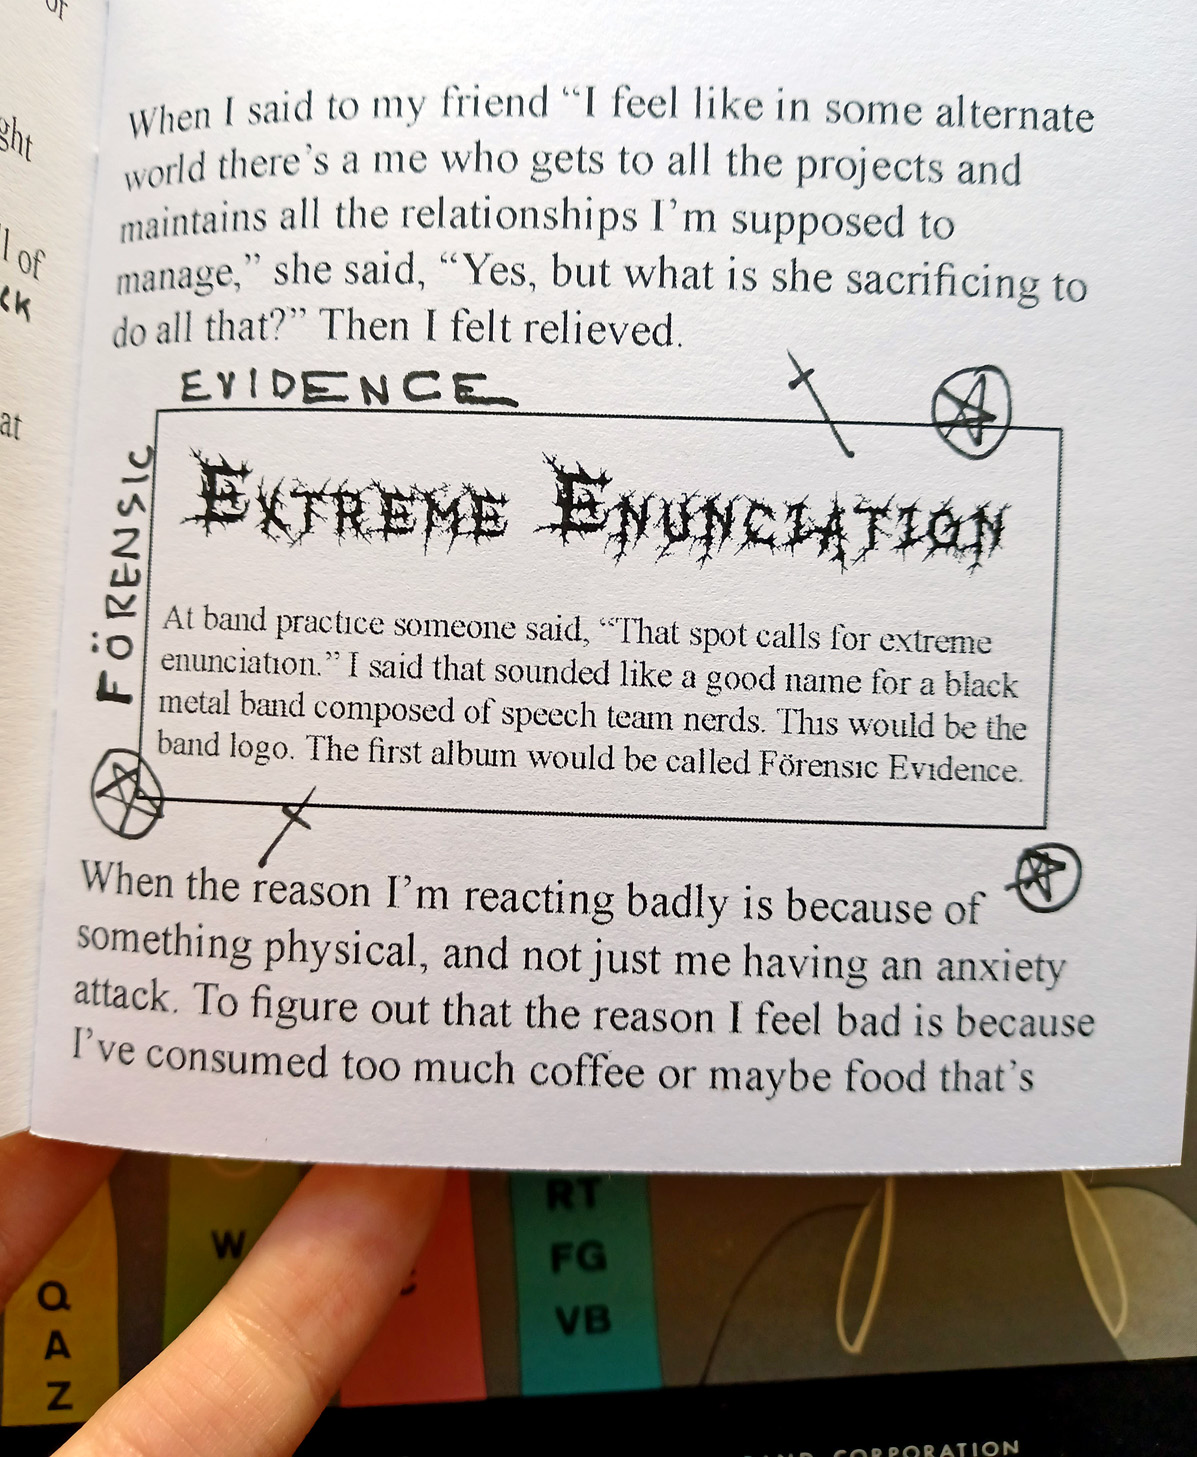 of
ght
l of
ck
at
When I said to my friend “I feel like in some alternate
world there’s a me who gets to all the projects and
maintains all the relationships I’m supposed to
manage,” she said, “Yes, but what is she sacrificing to
do all that?” Then I felt relieved.
EVIDENCE
FÖRENSIC
EXTREME ENUNCIATION
At band practice someone said, “That spot calls for extreme
enunciation.” I said that sounded like a good name for a black
metal band composed of speech team nerds. This would be the
band logo. The first album would be called Förensic Evidence.
When the reason I’m reacting badly is because of
something physical, and not just me having an anxiety
attack. To figure out that the reason I feel bad is because
I’ve consumed too much coffee or maybe food that’s
Q
A
Z
W
RT
FG
VB
CORPORATION